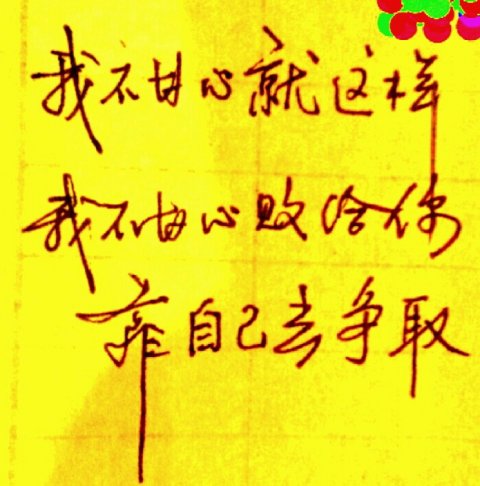 我不甘心就这样
我不甘心败给你
靠自己去争取